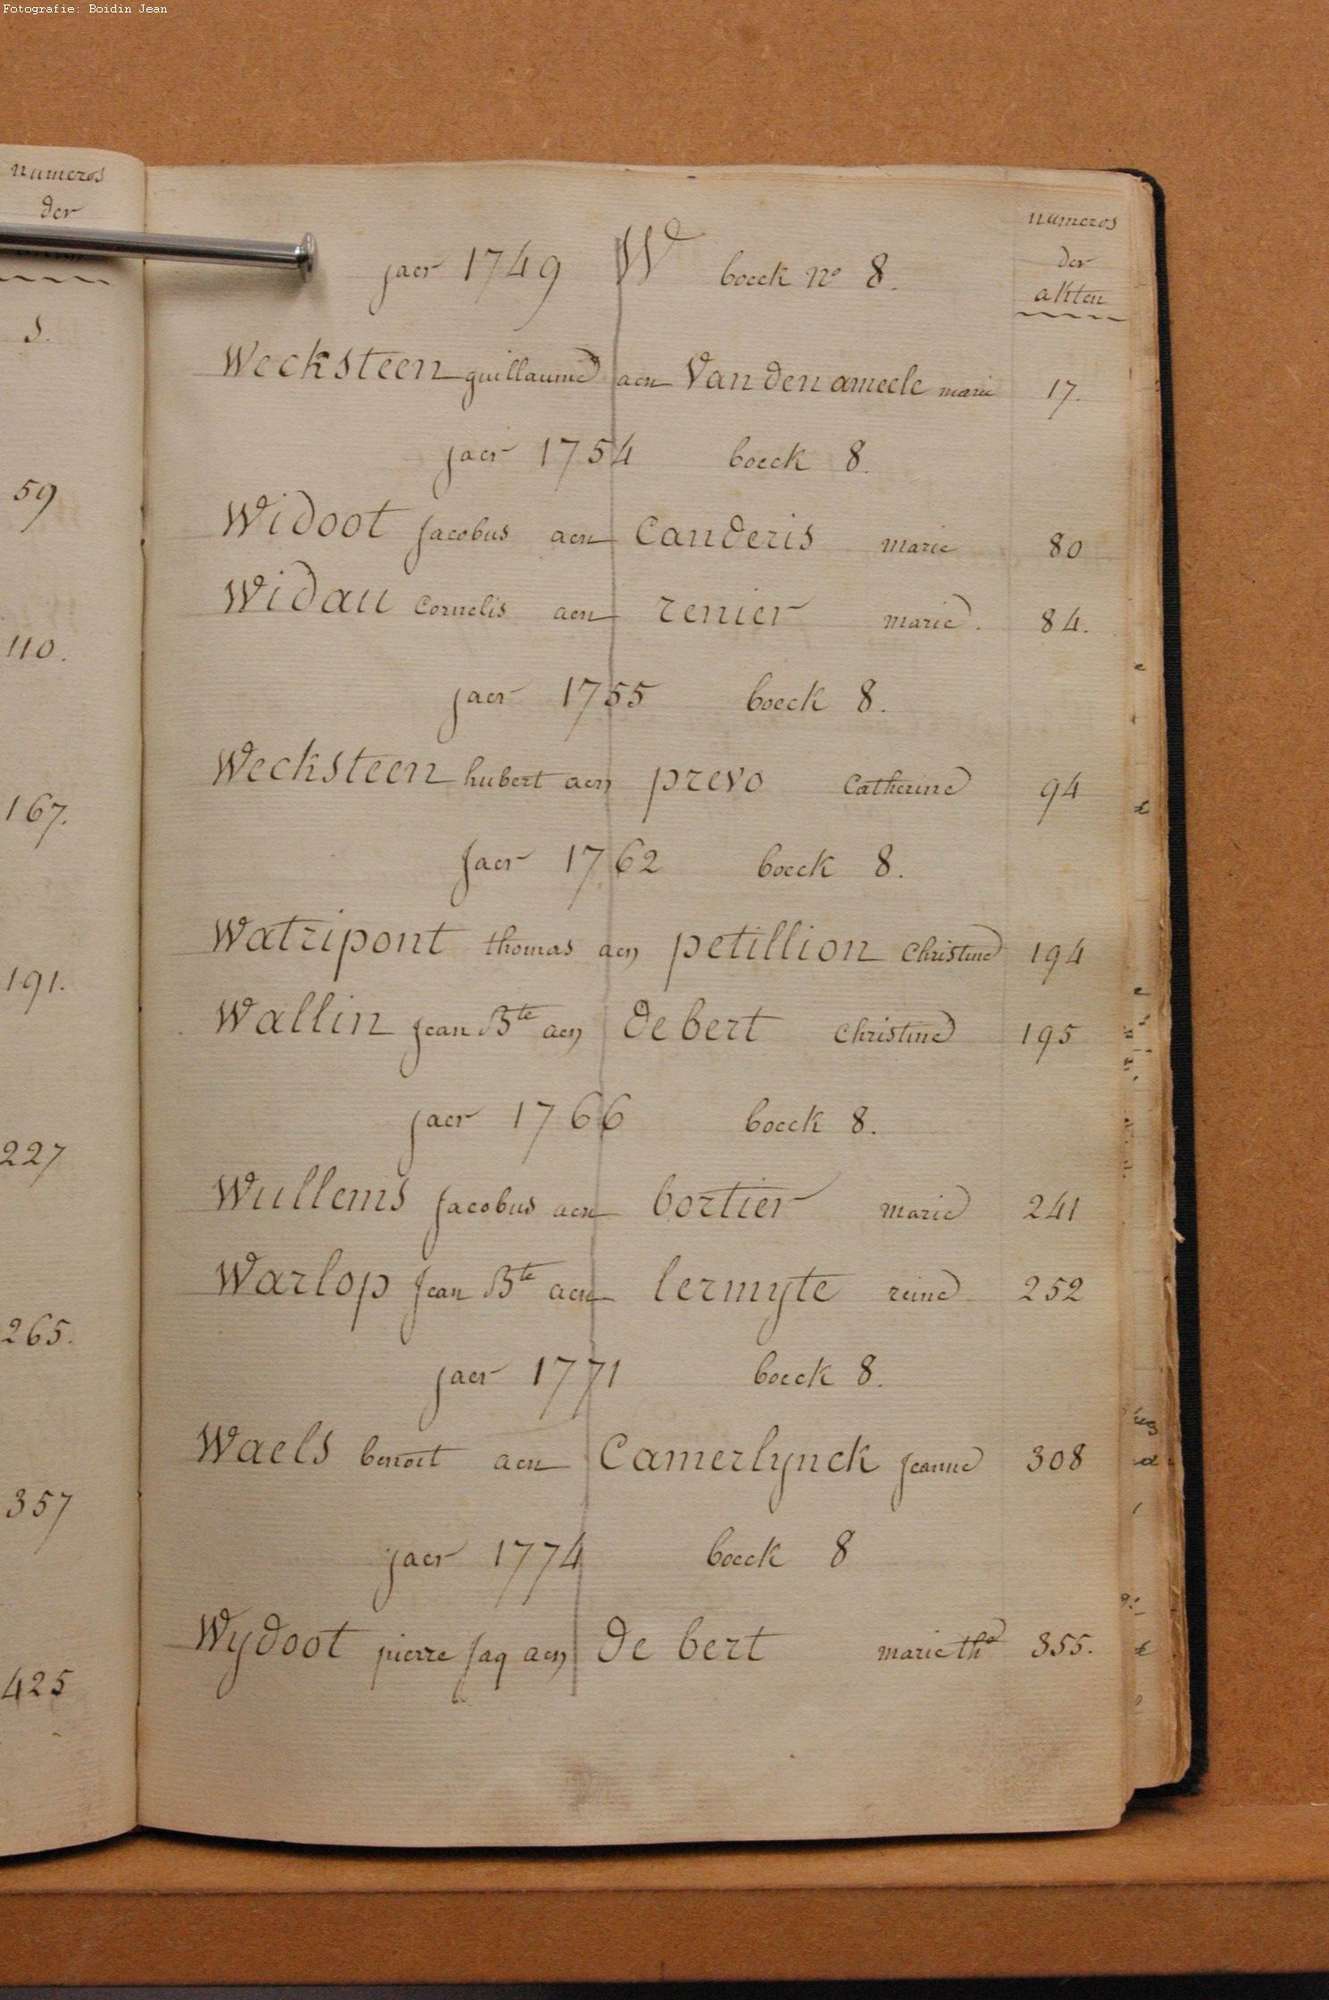 Fotografie: Boidin Jean
numeros
der
S.
59
110.
167.
191.
227
265.
357
425
numeros
der
akten
jaer 1749 W boeck no 8.
Wecksteen guillaume aen Van den ameele marie 17.
jaer 1754 boeck 8.
Widoot jacobus aen Canderis marie 80
Widau Cornelis aen renier marie. 84.
jaer 1755 boeck 8.
Wecksteen hubert aen prevo Catherine 94
jaer 1762 boeck 8.
Watripont thomas aen petillion Christine 194
Wallin jean Bte aen de bert Christine 195
jaer 1766 boeck 8.
Wullems jacobus aen bortier marie 241
Warlop jean Bte aen lermyte reine 252
jaer 1771 boeck 8.
Waels benoit aen Camerlynck jeanne 308
jaer 1774 boeck 8
Wydoot pierre jaq aen de bert marie the 355.